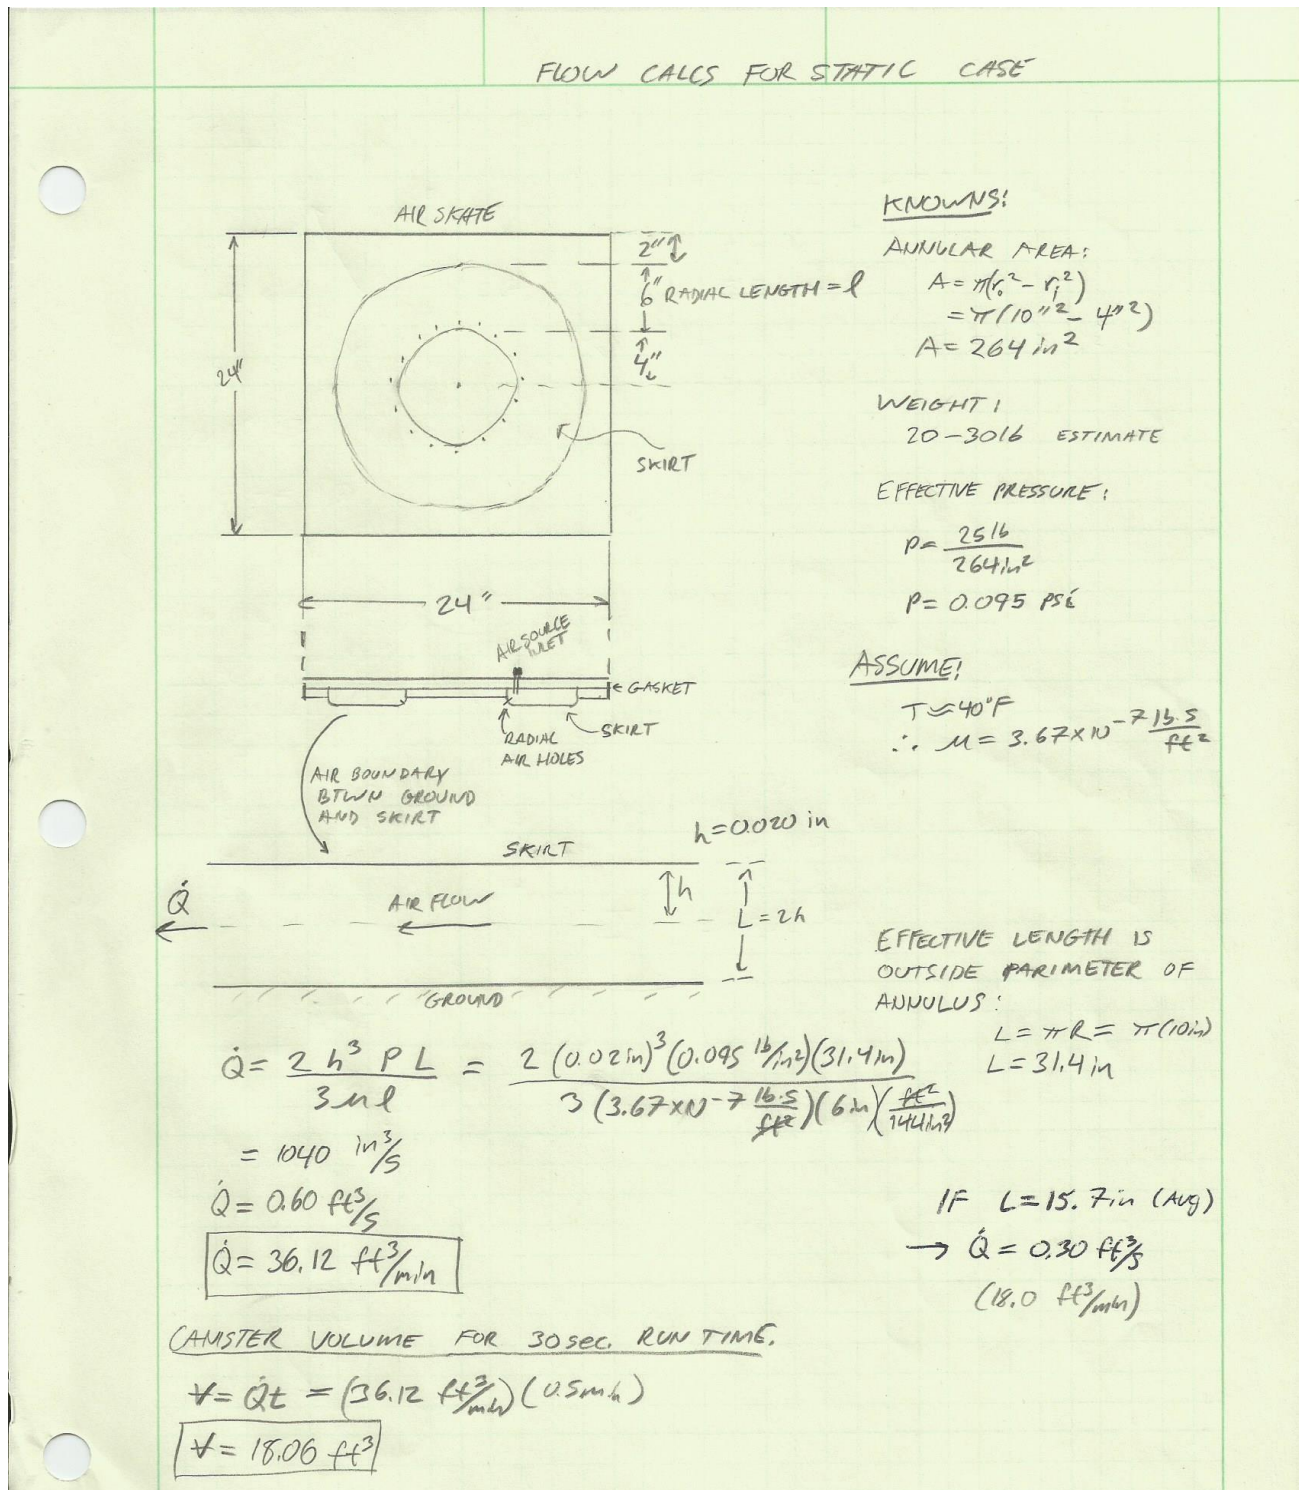 FLOW CALCS FOR STATIC CASE
AIR SKATE
24"
2"
6" RADIAL LENGTH = l
4"
SKIRT
24"
AIR SOURCE
INLET
GASKET
SKIRT
RADIAL
AIR HOLES
AIR BOUNDARY
BTWN GROUND
AND SKIRT
KNOWNS:
ANNULAR AREA:
A = π(r₀² - rᵢ²)
= π(10"² - 4"²)
A = 264 in²
WEIGHT:
20-30lb ESTIMATE
EFFECTIVE PRESSURE:
P = 25 lb / 264 in²
P = 0.095 PSi
ASSUME:
T ≈ 40°F
∴ μ = 3.67×10⁻⁷ lb·s/ft²
h = 0.020 in
SKIRT
Q̇
AIR FLOW
h
L = 2h
GROUND
EFFECTIVE LENGTH IS
OUTSIDE PARIMETER OF
ANNULUS:
L = πR = π(10in)
L = 31.4 in
Q̇ = 2 h³ P L / 3μl = 2 (0.02in)³ (0.095 lb/in²)(31.4in) / 3 (3.67×10⁻⁷ lb·s/ft²)(6in)(ft²/144in²)
= 1040 in³/s
Q̇ = 0.60 ft³/s
Q̇ = 36.12 ft³/min
IF L = 15.7in (AVG)
→ Q̇ = 0.30 ft³/s
(18.0 ft³/min)
CANISTER VOLUME FOR 30 SEC. RUN TIME.
V = Q̇t = (36.12 ft³/min)(0.5min)
V = 18.06 ft³